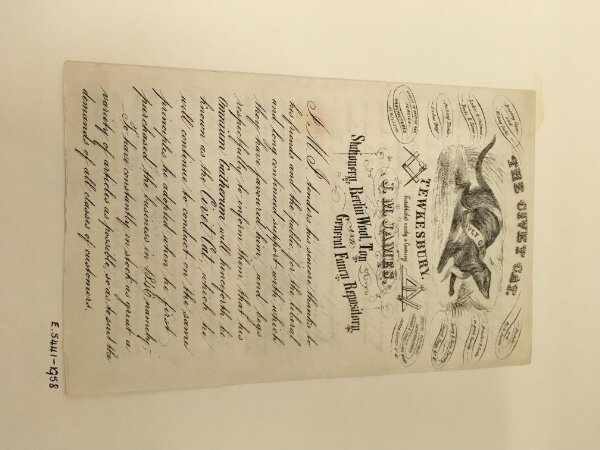 THE CIVET CAT
CIVET CAT
TEWKESBURY.
Established nearly a Century
J. M. JAMES,
Stationery, Berlin Wool, Toy
AND
General Fancy Repository.
J. M. J. tenders his sincere thanks to
his friends and the public for the liberal
and long continued support with which
they have favoured him, and begs
respectfully to inform them that his
Omnium Gatherum will henceforth be
known as the Civet Cat, which he
will continue to conduct on the same
principles he adopted when he first
purchased the business in 1836, namely:
To have constantly in stock as great a
variety of articles as possible, so as to suit the
demands of all classes of customers.
E.5441-1958